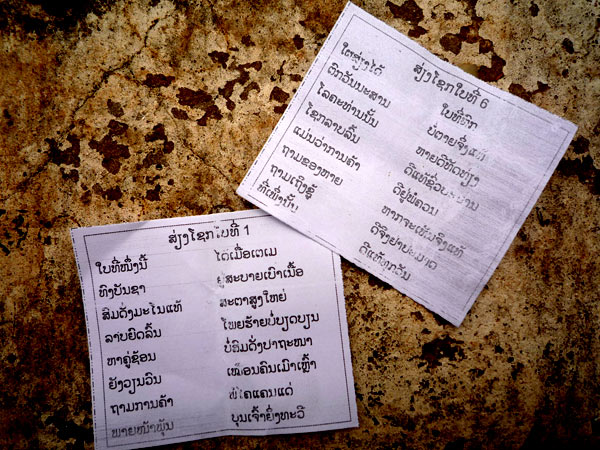 ສ່ຽງໂຊກໃບທີ່ 1
ໃບທີ່ໜຶ່ງນີ້ ໄດ້ເມື່ອເຕເມ
ທົງບັນຊາ ຢູ່ສະບາຍເບົາເນື້ອ
ສົມດັ່ງມະໂນແທ້ ສະຕາສູງໃຫຍ່
ລາບຍົດລົ້ນ ໂພຍຮ້າຍບໍ່ບຽດບຽນ
ຫາຄູ່ຊ້ອນ ບໍ່ສົມດັ່ງປາຖະໜາ
ຍັງວຽນວົນ ເໝືອນຄົນເມົາເຫຼົ້າ
ຖາມການຄ້າ ພໍໄຄແຄນແດ່
ພາຍໜ້າພຸ້ນ ບຸນເຈົ້າຍິ່ງທະວີ
ສ່ຽງໂຊກໃບທີ່ 6
ໃຜສ່ຽງໄດ້ ໃບທີ່ຫົກ
ຕົກວັນນະສານ ບໍ່ຕາຍຈິ່ງແທ້
ໄລຄະທ່ານນັ້ນ
ໂຊກລາບລົ້ນ
ແມ່ນວ່າການຄ້າ ດີຢູ່ພໍຄວນ
ຖາມຂອງຫາຍ ຫາກຈະເຫັນຈິ່ງແທ້
ຖາມເຖິງຊູ້ ດີຈິ່ງຢ່າປະມາດ
ທີ່ເພິ່ງນັ້ນ ດີແທ້ທຸກວັນ